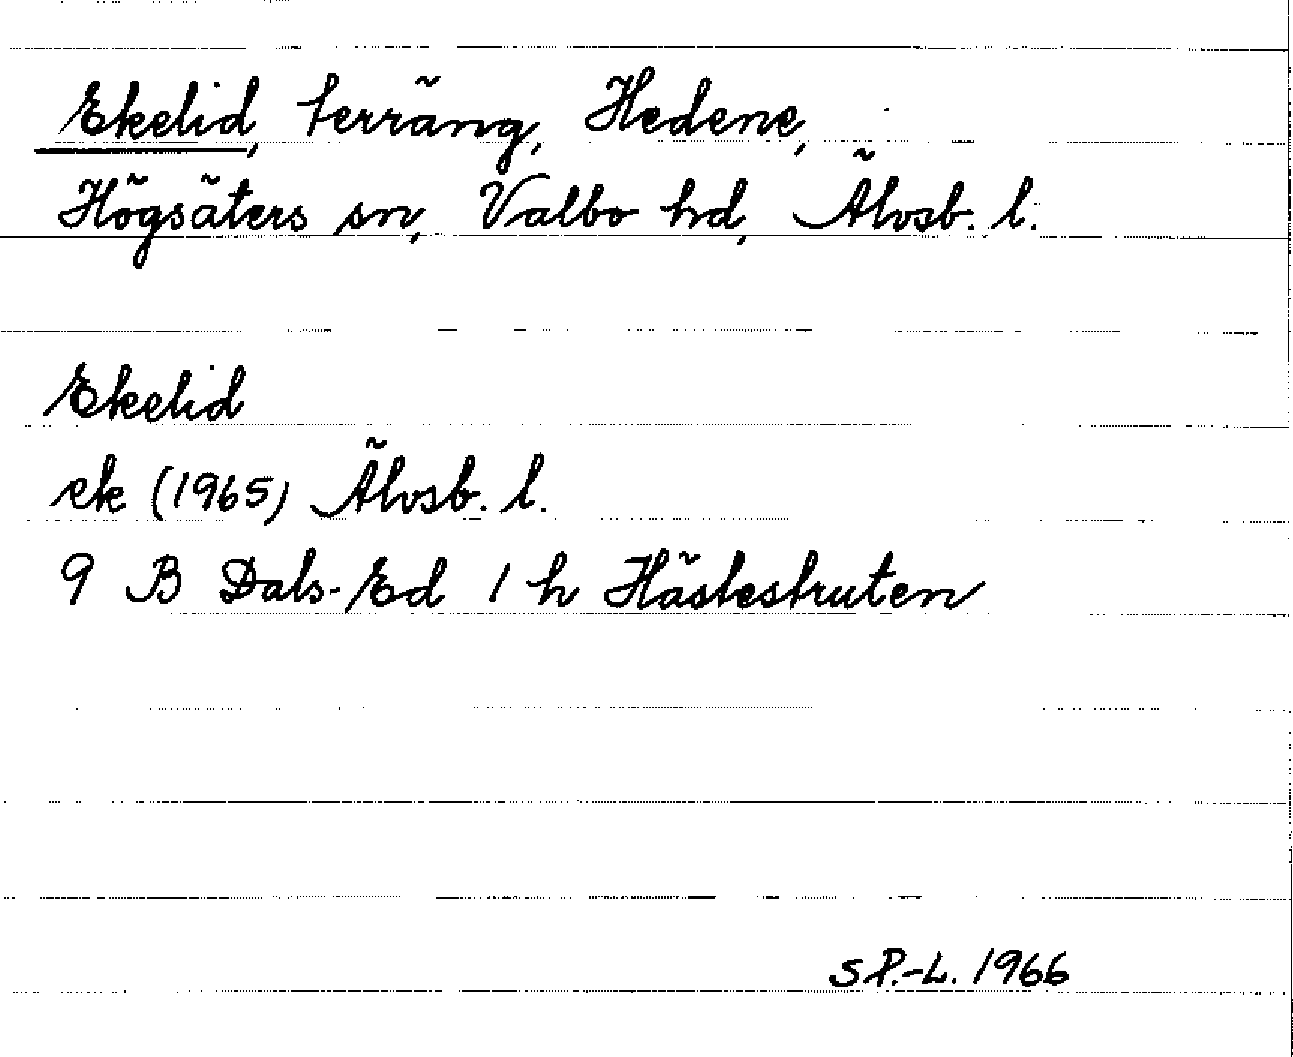 Ekelid, terräng, Hedene,
Högsäters sn, Valbo hd, Älvsb. l.
Ekelid
ek (1965) Älvsb. l.
9 B Dals-Ed 1 h Hästestruten
S P.-L. 1966